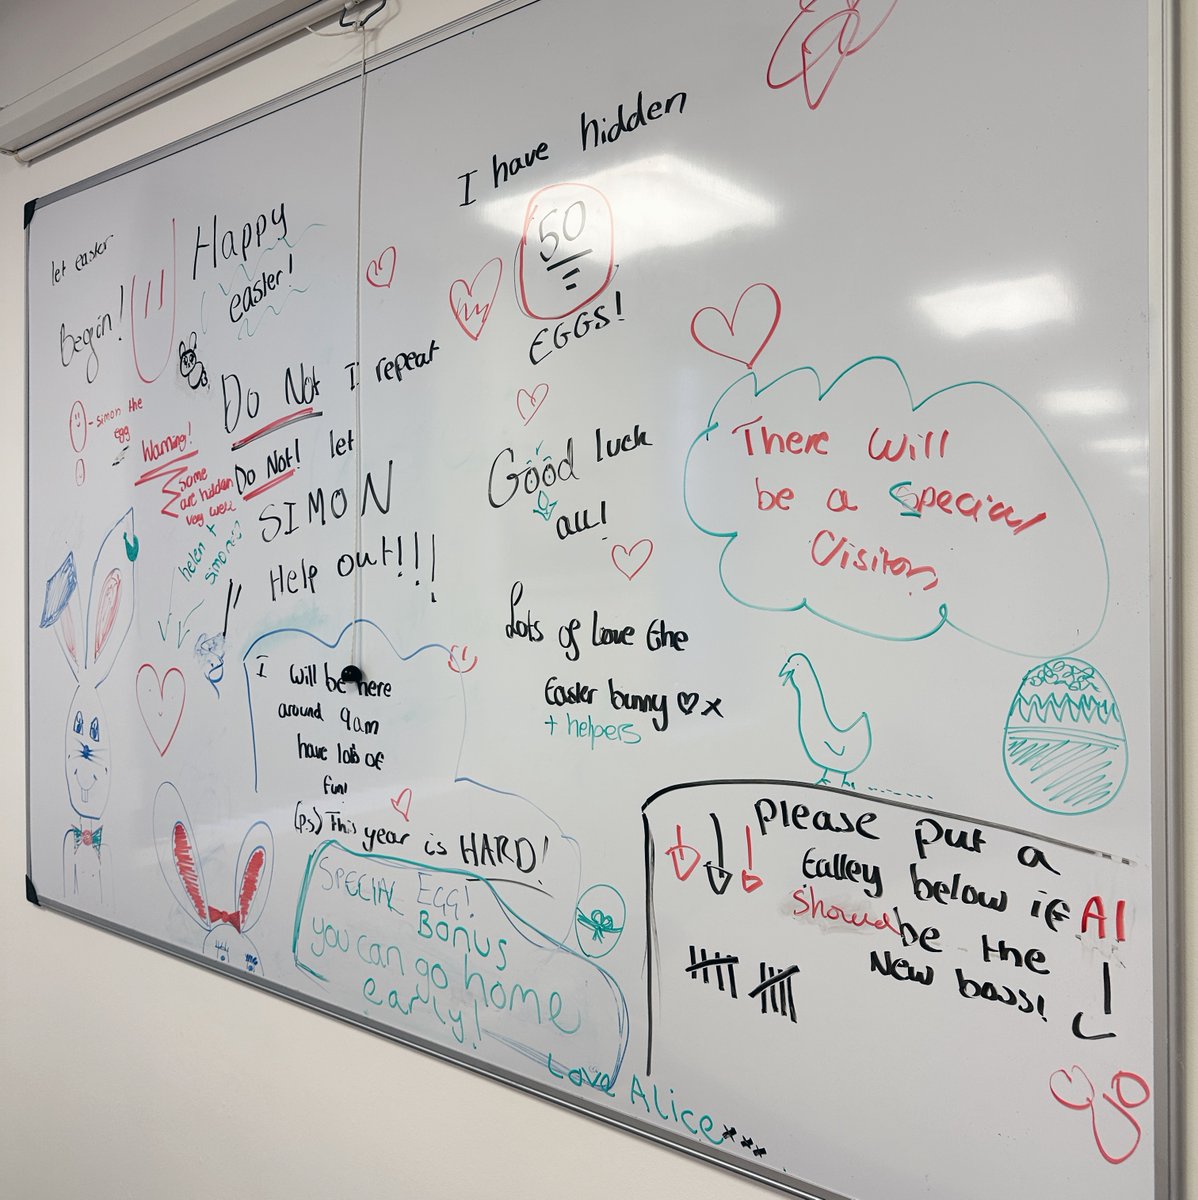 let easter
Begin!
Happy
easter!
- simon the
egg
Warning!
Some
are hidden
very well
helen +
simon
Do Not I repeat
Do Not! let
SIMON
Help out!!!
I will be here
around 9am
have lots of
fun!
(ps) This year is HARD!
SPECIAL EGG!
BONUS
you can go home
early!
Love Alice xxx
I have hidden
50
EGGS!
Good luck
all!
Lots of love the
Easter bunny ♡ x
+ helpers
There will
be a special
Visitor
please put a
talley below if AI
should be the
New boss!